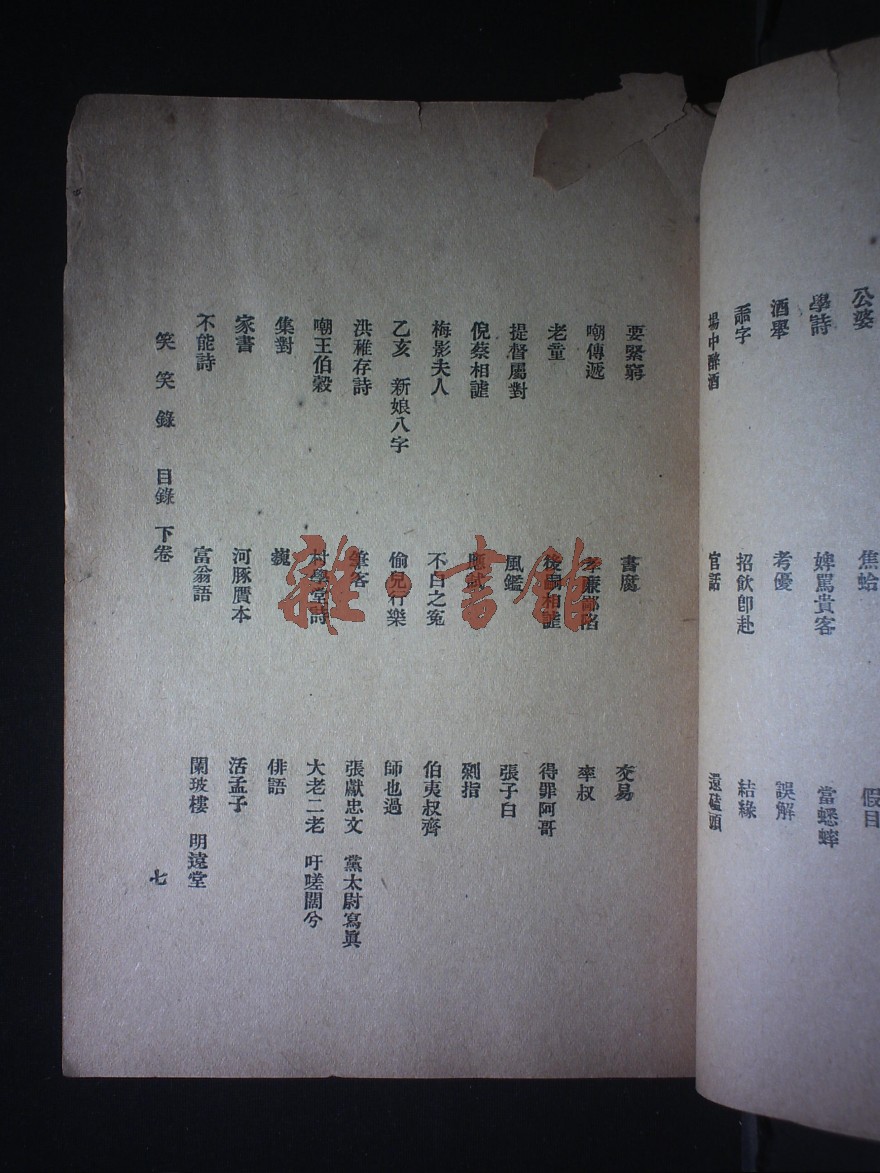 公婆 焦蛤 假目
學詩 婢罵貴客 當蟋蟀
酒舉 考優 誤解
字 招飲卽赴 結緣
場中醉酒 官話 還磕頭
要緊窮 書 交易
嘲傳遞 孝廉鄙陋 率叔
老童 後嗣相謔 得罪阿哥
提督屬對 風鑑 張子白
倪蔡相謔 應試 剁指
梅影夫人 不白之冤 伯夷叔齊
乙亥 新娘八字 偷兒行樂 師也過
洪稚存詩 筆客 張獻忠文 黨太尉寫眞
嘲王伯穀 村學堂詩 大老二老 吁嗟闊兮
集對 巍 俳語
家書 河豚贗本 活孟子
不能詩 富翁語 闌玻樓 明遠堂
笑笑錄 目錄 下卷 七
雜·書館